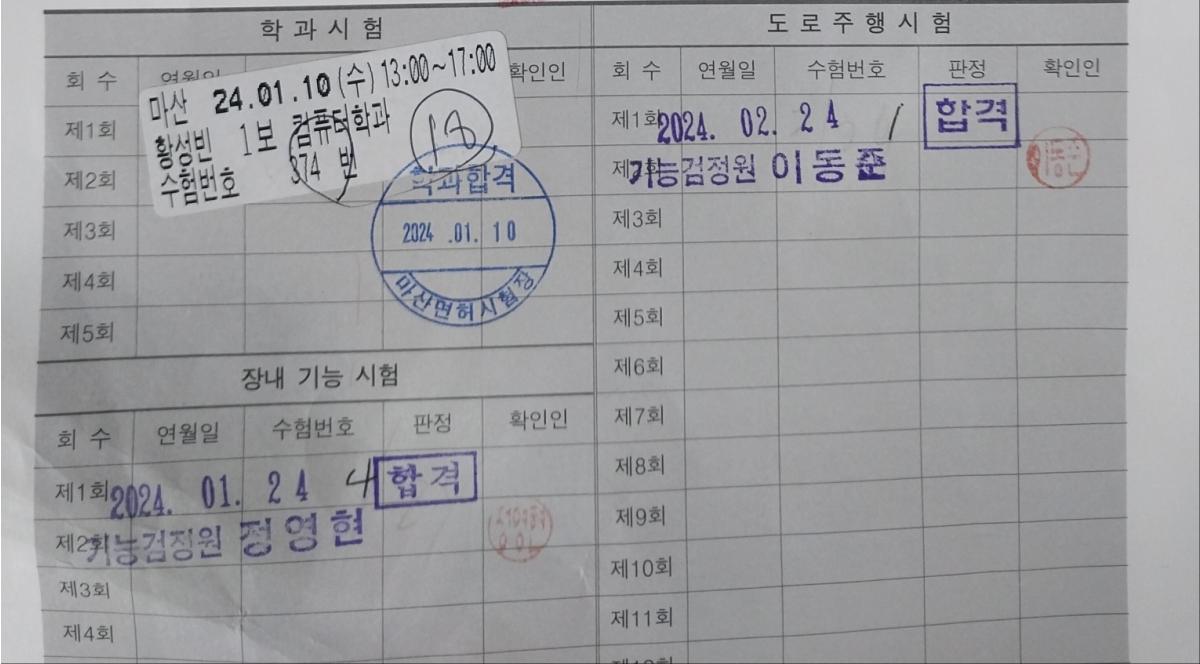 학과시험
회 수 연월일 확인인
마산 24.01.10 (수) 13:00~17:00
황성빈 1보 컴퓨터학과
수험번호 374 번
18
제1회
제2회
제3회
제4회
제5회
학과합격
2024 .01. 10
마산면허시험장
장내 기능 시험
회 수 연월일 수험번호 판정 확인인
제1회 2024. 01. 24 4 합격
제2회 기능검정원 정영현
제3회
제4회
도로주행시험
회 수 연월일 수험번호 판정 확인인
제1회 2024. 02. 24 1 합격
기능검정원 이동준
제3회
제4회
제5회
제6회
제7회
제8회
제9회
제10회
제11회